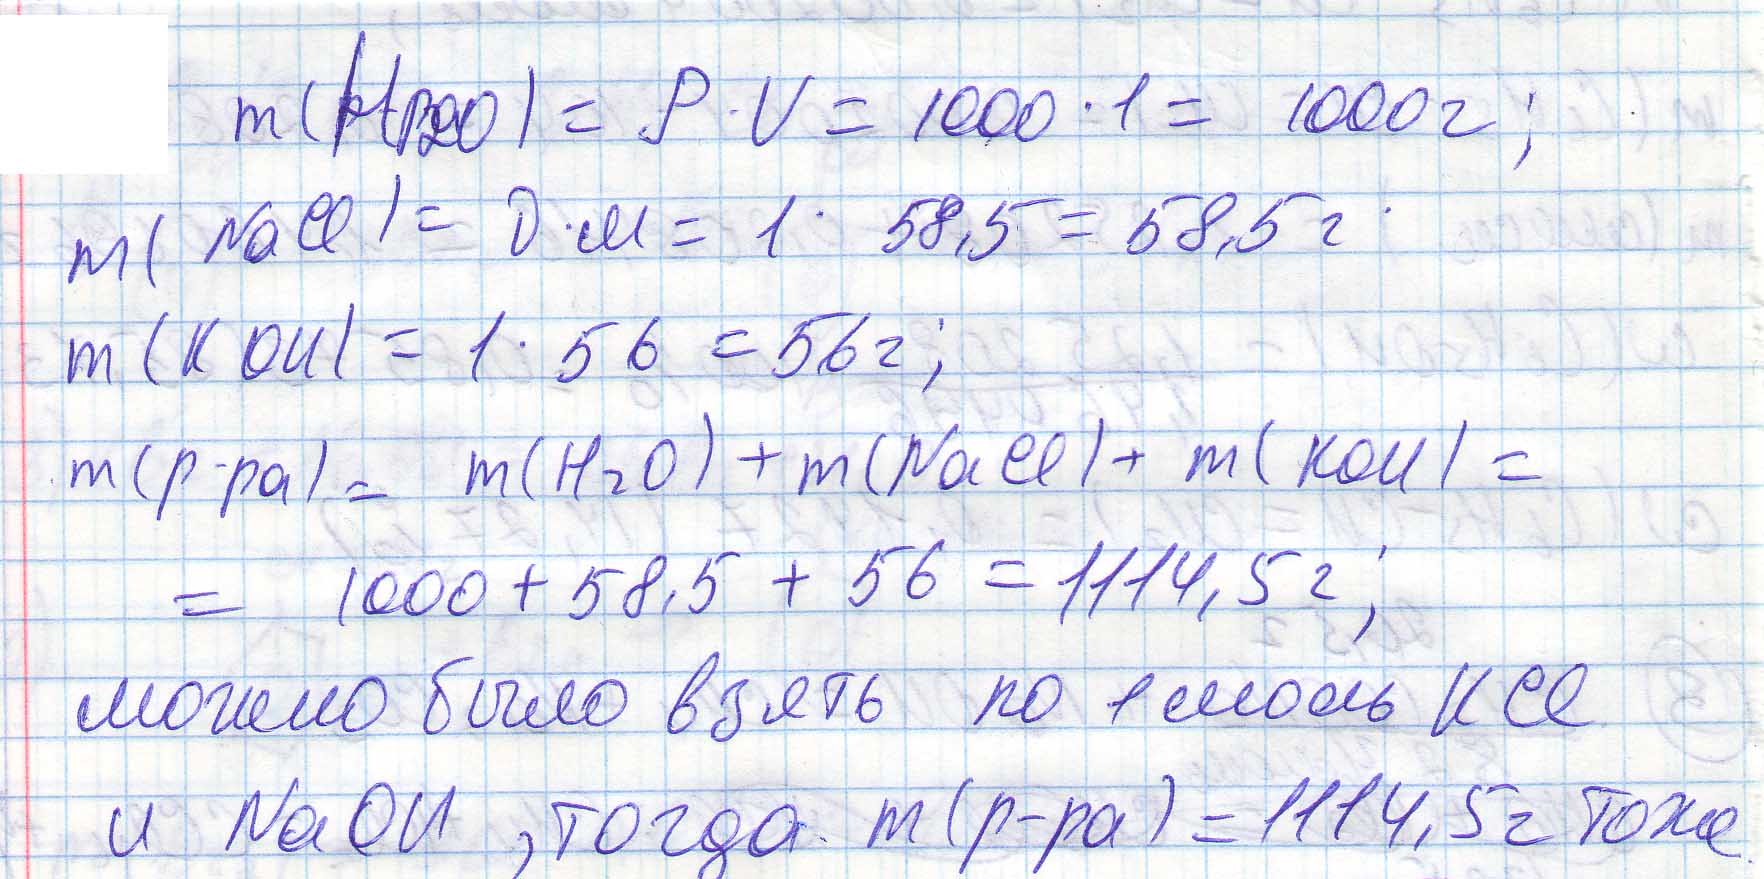 m(H2O) = ρ·V = 1000·1 = 1000г;
m(NaCl) = ν·M = 1· 58,5 = 58,5г
m(KOH) = 1·56 = 56г;
m(р-ра) = m(H2O) + m(NaCl) + m(KOH) =
= 1000 + 58,5 + 56 = 1114,5г;
можно было взять по 1 моль KCl
и NaOH, тогда m(р-ра) = 1114,5г тоже